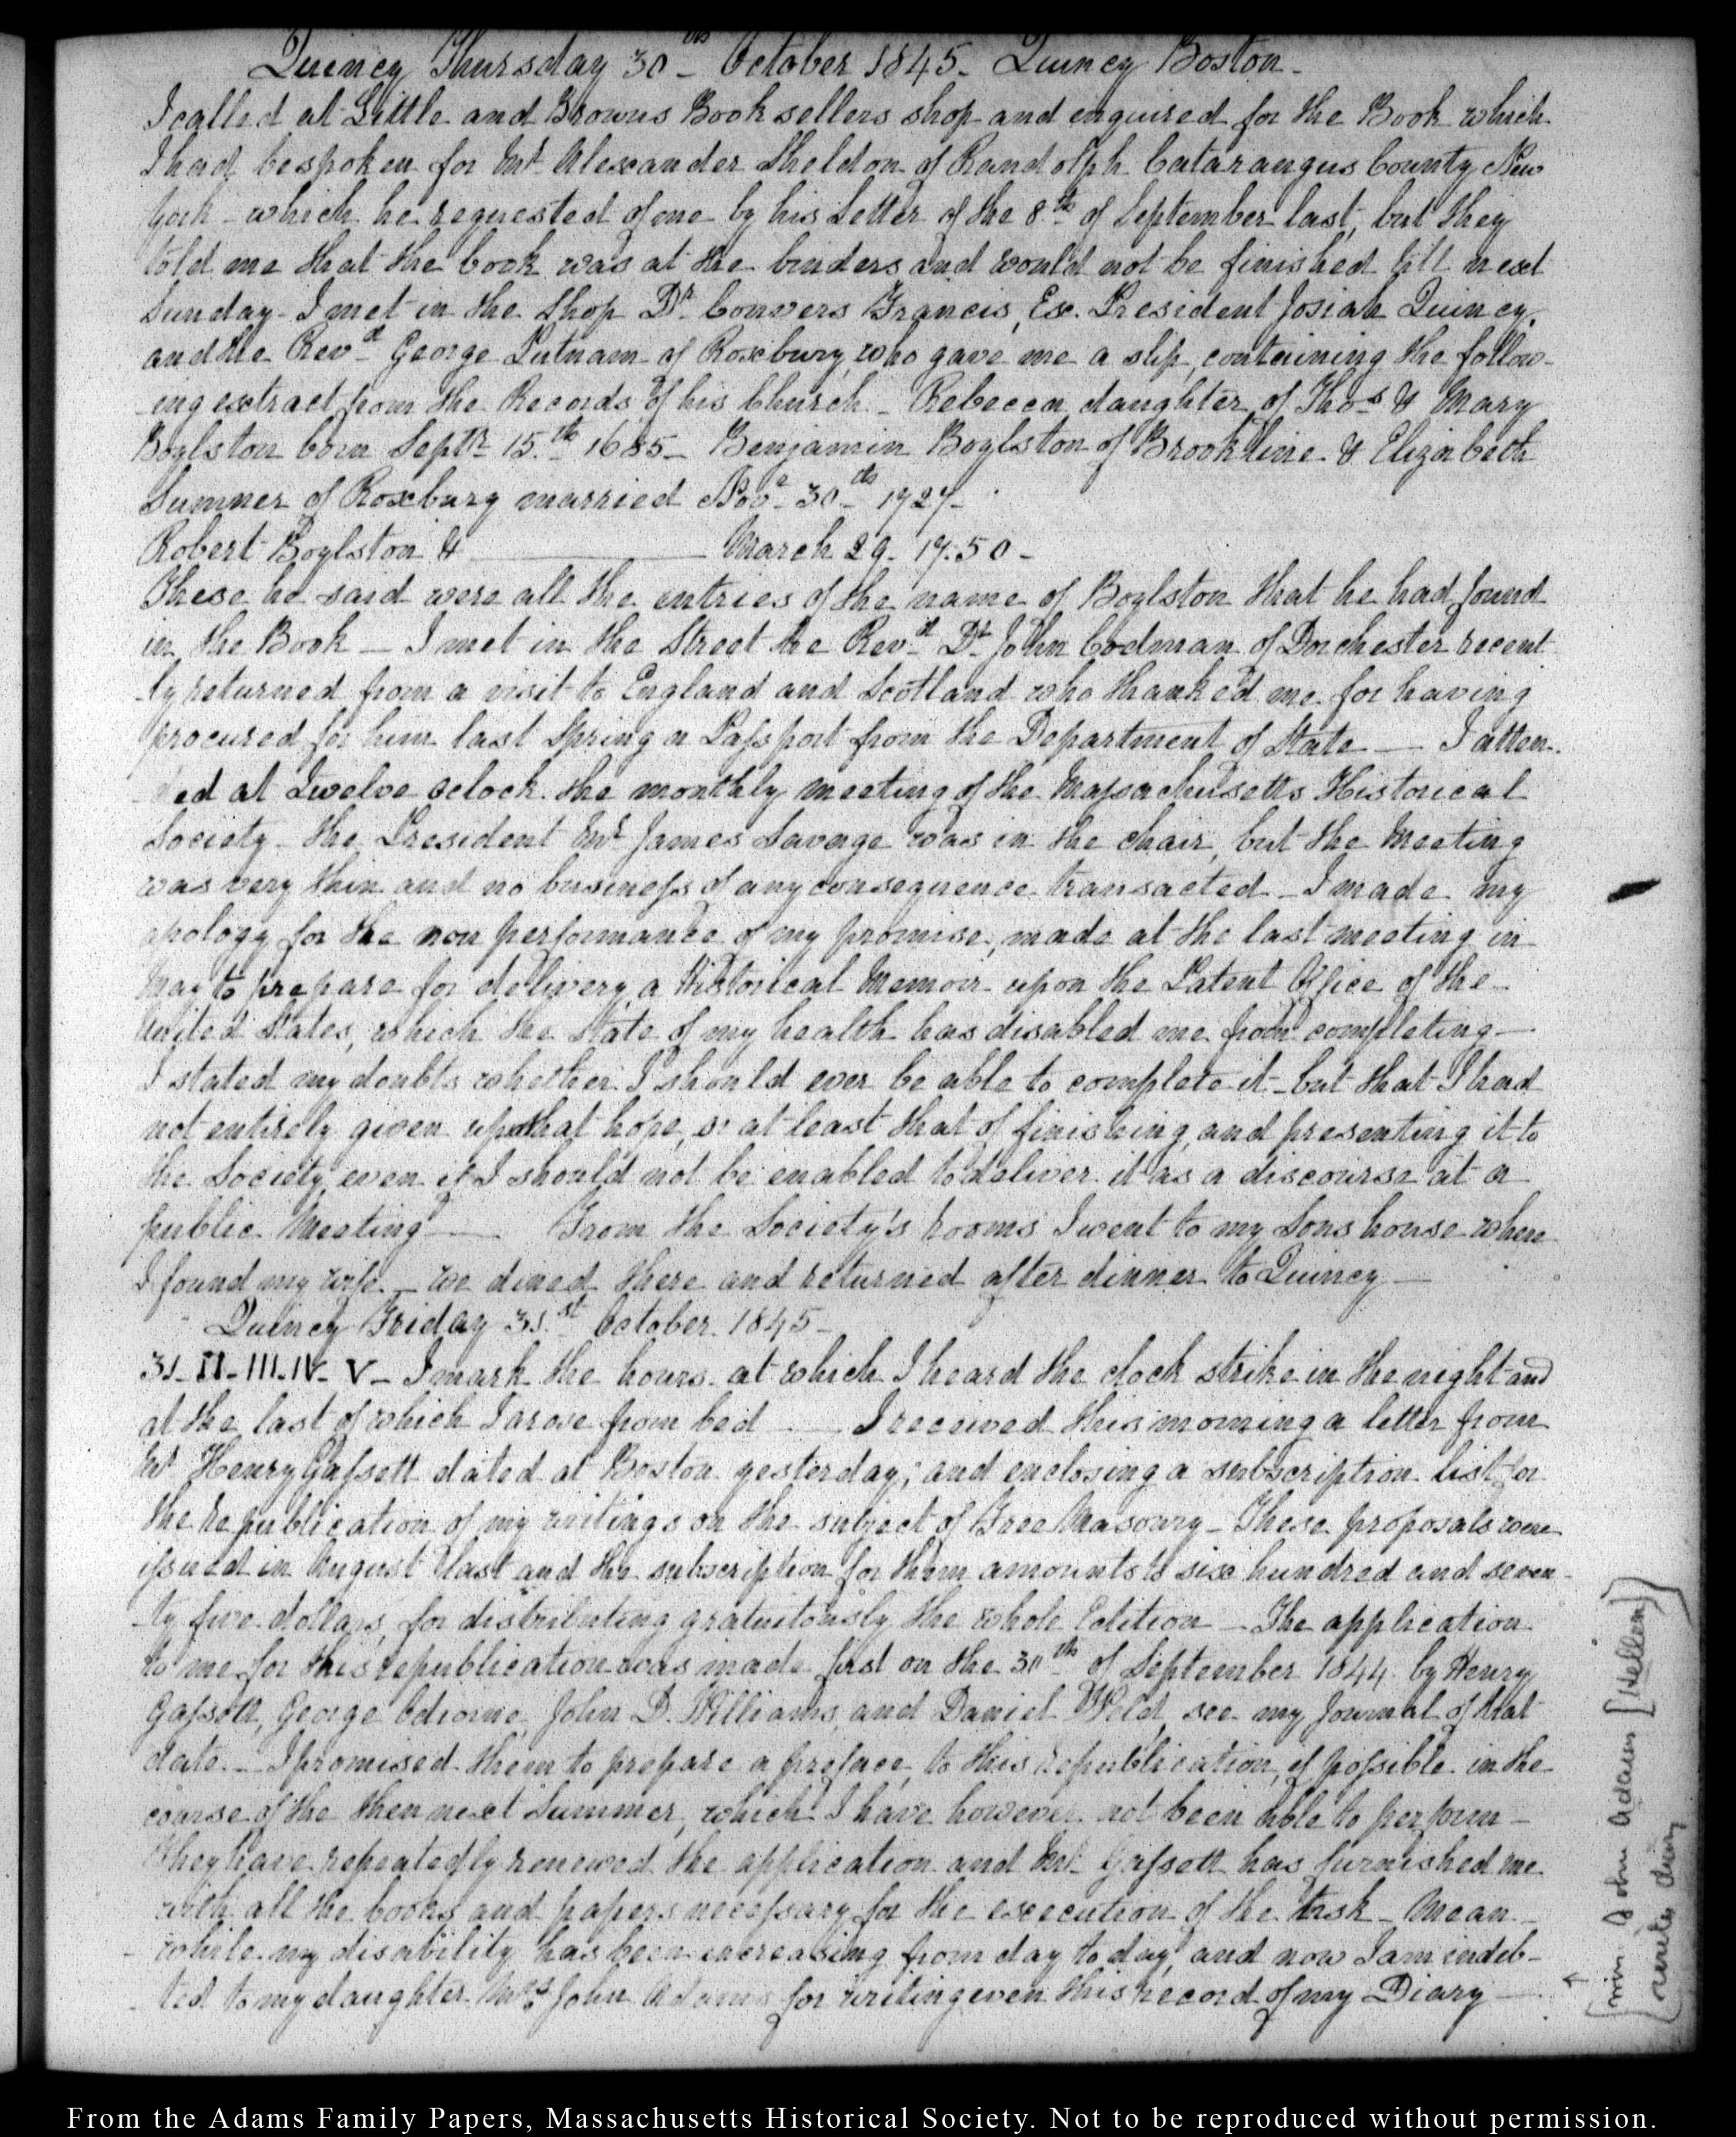 Quincy Thursday 30th October 1845. Quincy Boston.
I called at Little and Browns Booksellers shop and enquired for the Book which
I had bespoken for Mr. Alexander Sheldon of Randolph Cataraugus County New
York - which he requested of me by his Letter of the 8th of September last, but they
told me that the book was at the binders and would not be finished till next
Sunday - I met in the Shop Dr. Convers Francis, Ex. President Josiah Quincy,
and the Revd. George Putnam of Roxbury, who gave me a slip, containing the follow-
-ing extract from the Records of his Church - Rebecca daughter of Thos & Mary
Boylston born Septr 15.th 1685 - Benjamin Boylston of Brookline & Elizabeth
Sumner of Roxbury married Nov. 30th 1727 -
Robert Boylston & ———— March 29. 1750 -
These he said were all the entries of the name of Boylston that he had found
in the Book — I met in the Street the Revd Dr John Codman of Dorchester recent
-ly returned from a visit to England and Scotland who thanked me for having
procured for him last Spring a Passport from the Department of State — I atten-
-ded at Twelve oclock the monthly meeting of the Massachusetts Historical
Society - the President Mr James Savage was in the chair, but the Meeting
was very thin and no business of any consequence transacted - I made my
apology for the non performance of my promise, made at the last meeting in
May to prepare for delivery a Historical Memoir upon the Patent Office of the
United States, which the state of my health has disabled me from completing —
I stated my doubts whether I should ever be able to complete it - but that I had
not entirely given up that hope, or at least that of finishing and presenting it to
the Society even if I should not be enabled to deliver it as a discourse at a
public Meeting — From the Society's rooms I went to my Sons house where
I found my wife - we dined there and returned after dinner to Quincy —
Quincy Friday 31.st October. 1845 -
31 - II - III - IV - V - I mark the hours at which I heard the clock strike in the night and
at the last of which I arose from bed — I received this morning a letter from
Mr Henry Gassett dated at Boston yesterday; and enclosing a subscription list for
the republication of my writings on the subject of Free Masonry - These proposals were
issued in August last and the subscription for them amounts to six hundred and seven-
-ty five dollars, for distributing gratuitously the whole Edition - The application
to me for this republication was made first on the 30th of September 1844 by Henry
Gassett, George Odiorne, John D. Williams, and Daniel Weld, see my Journal of that
date - I promised them to prepare a preface to this republication, if possible in the
course of the then next Summer, which I have however not been able to perform -
They have repeatedly renewed the application and Mr. Gassett has furnished me
with all the books and papers necessary for the execution of the task - Mean-
while my disability has been increasing from day to day, and now I am indeb-
-ted to my daughter Mrs John Adams for writing even this record of my Diary —
John Adams [Hellen]
diary
From the Adams Family Papers, Massachusetts Historical Society. Not to be reproduced without permission.